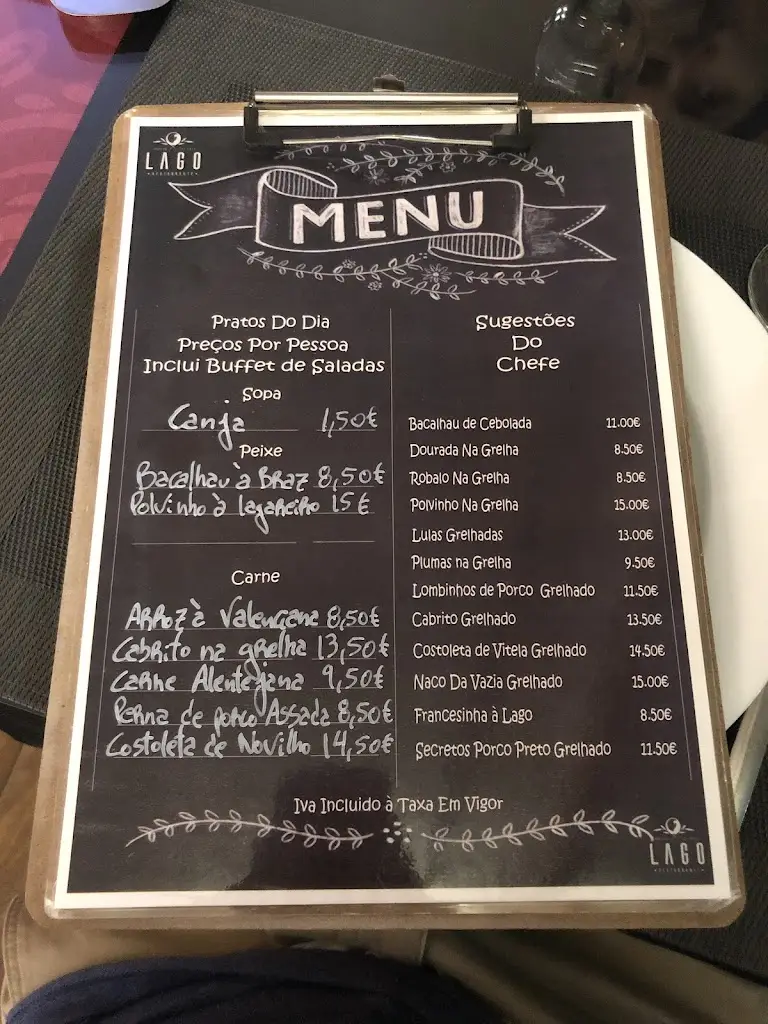 LAGO
RESTAURANTE
MENU
Pratos Do Dia
Preços Por Pessoa
Inclui Buffet de Saladas
Sopa
Canja 1,50€
Peixe
Bacalhau à Braz 8,50€
Polvinho à lagareiro 15€
Carne
Arroz à Valenciana 8,50€
Cabrito na grelha 13,50€
Carne Alentejana 9,50€
Perna de porco Assada 8,50€
Costoleta de Novilho 14,50€
Sugestões
Do
Chefe
Bacalhau de Cebolada 11.00€
Dourada Na Grelha 8.50€
Robalo Na Grelha 8.50€
Polvinho Na Grelha 15.00€
Lulas Grelhadas 13.00€
Plumas na Grelha 9.50€
Lombinhos de Porco Grelhado 11.50€
Cabrito Grelhado 13.50€
Costoleta de Vitela Grelhado 14.50€
Naco Da Vazia Grelhado 15.00€
Francesinha à Lago 8.50€
Secretos Porco Preto Grelhado 11.50€
Iva Incluido à Taxa Em Vigor
LAGO
RESTAURANTE